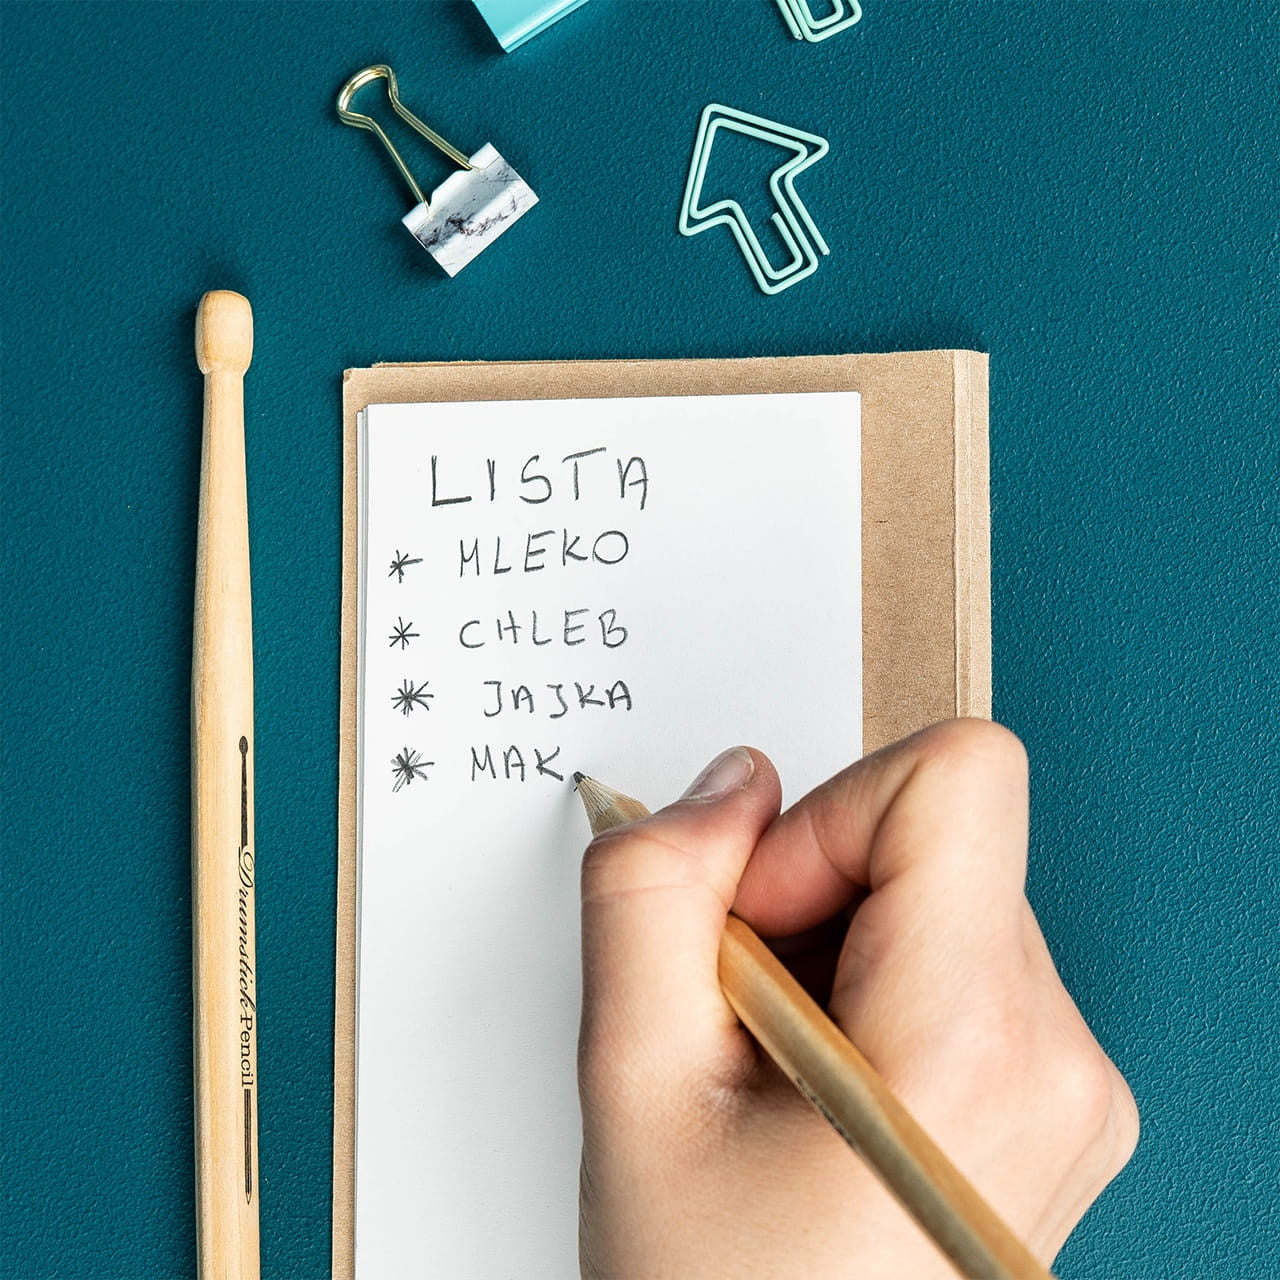 LISTA
* MLEKO
* CHLEB
* JAJKA
* MAK
Drumstick Pencil